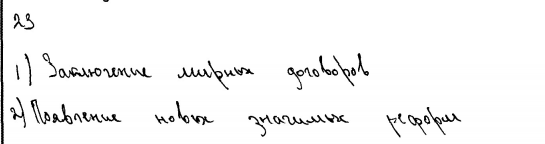 23
1) Заключение мирных договоров
2) Появление новых значимых реформ